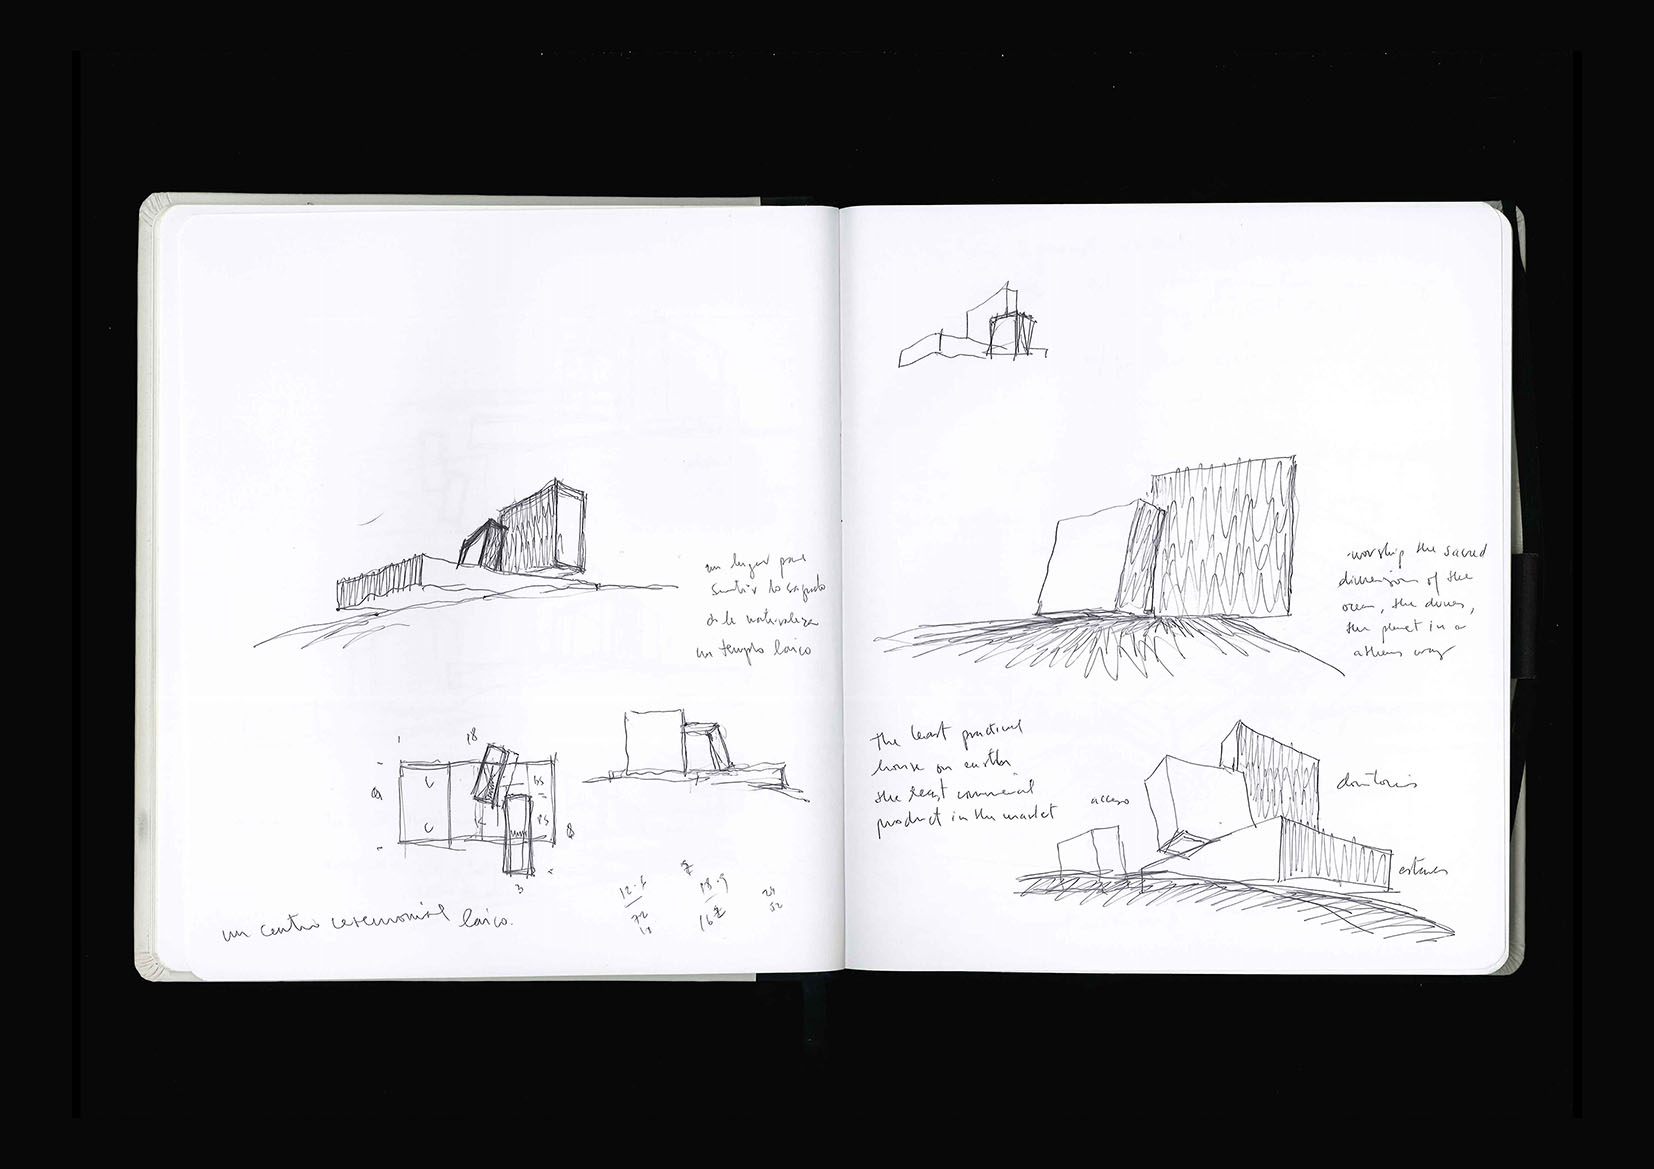 un lugar para
sentir lo sagrado
de la naturaleza
un templo laico
18
C
C
DS
PS
8
3
12.6
72
18
18.9
162
24
52
un centro ceremonial laico.
worship the sacred
dimension of the
ocean, the dunes,
the planet in a
atheus way
The least practical
house on earth
the least commercial
product in the market
acceso
dormitorios
estares